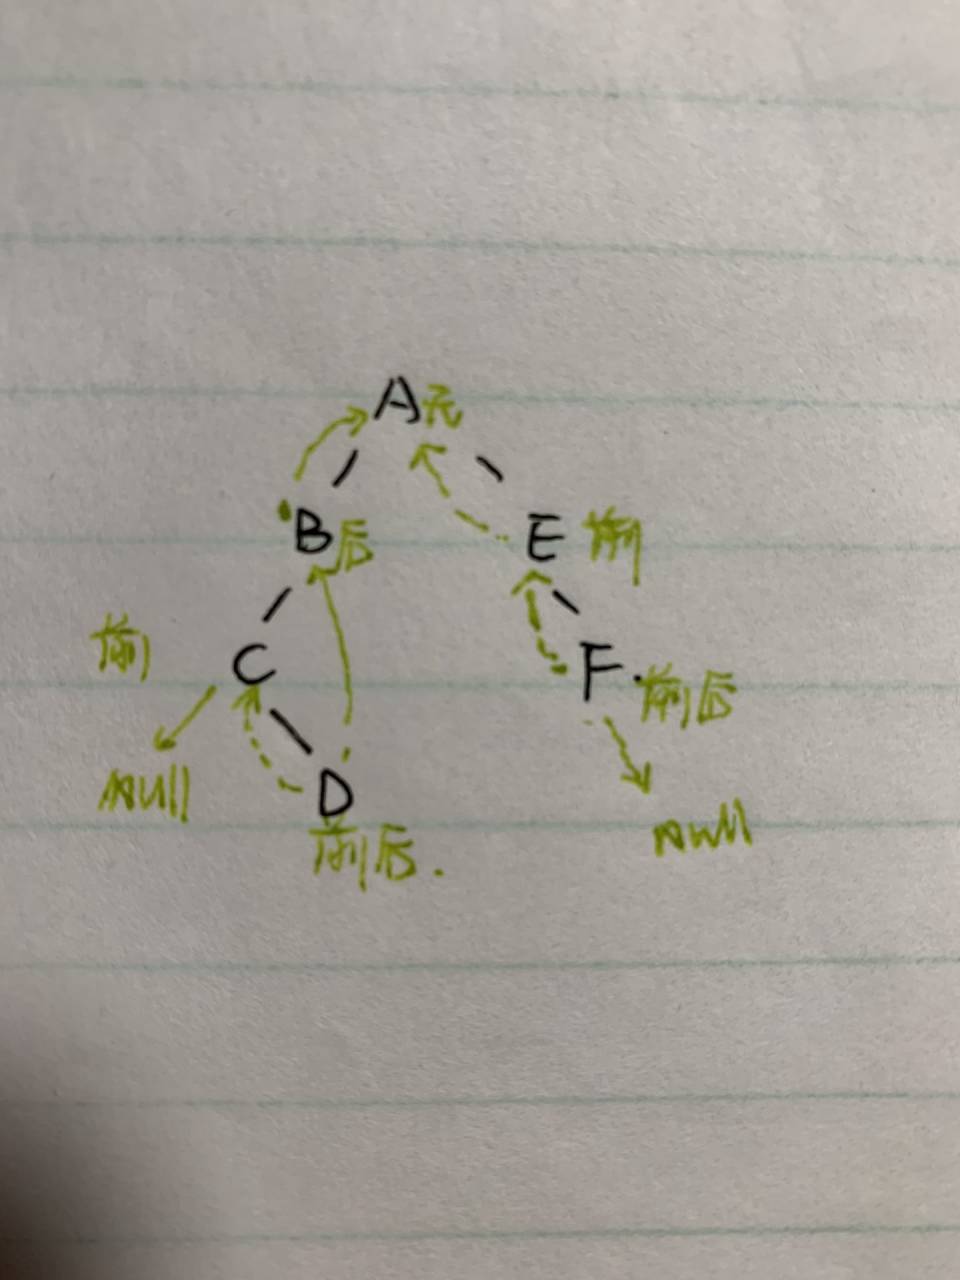 A无
B后
E 前
前 C
F 前后
null D
前后
null